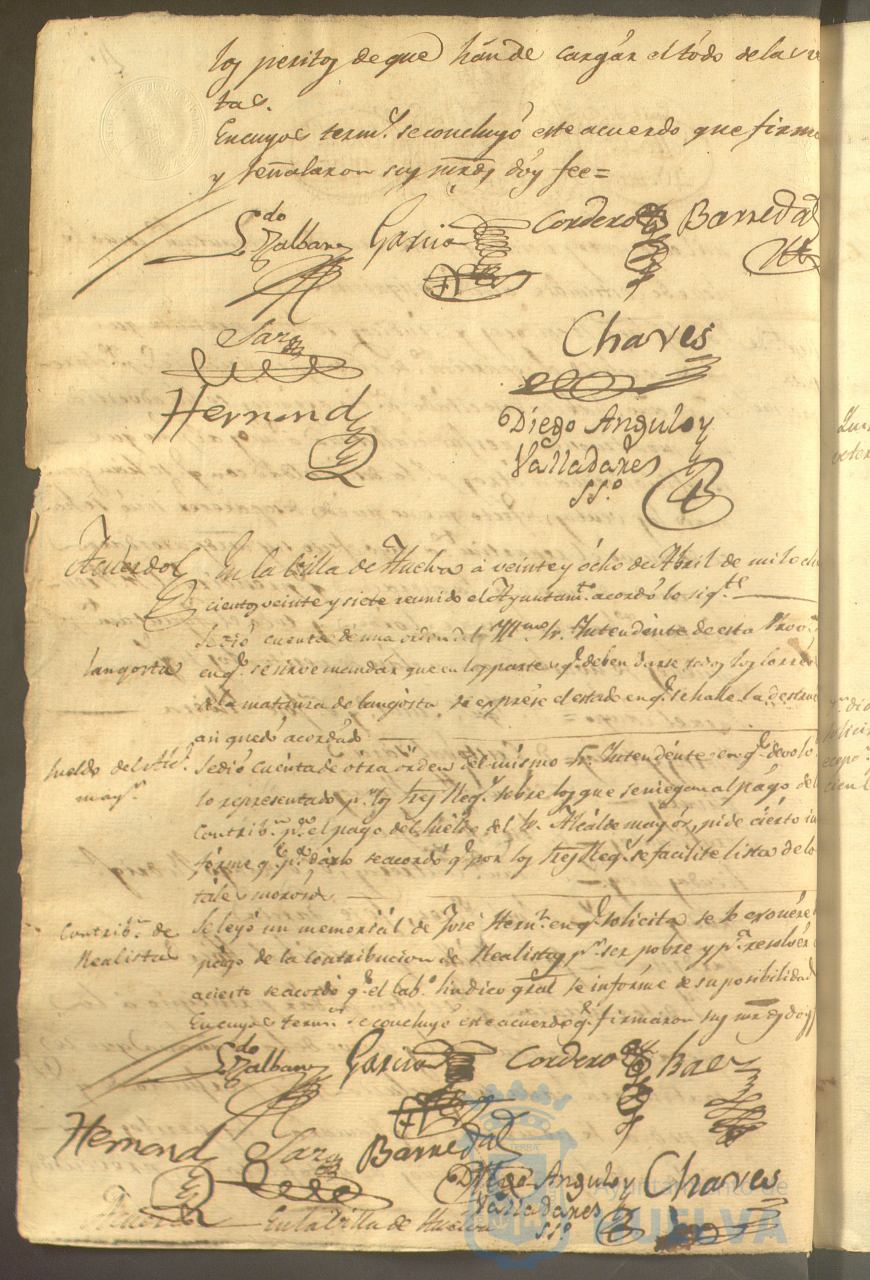 los peritos de que hán de cargár el tódo de la
tas.
En cuyos term.s se concluyó este acuerdo que firma
y señalaron sus mrds doy fee=
S.do Garcia Cordero Barreda
Chaves
Hernand
Diego Angulo y
Valladares
SS.o
Acuerdo En la Villa de Huelva á veinte y ócho de Abril de mil och
cientos veinte y siete reunido el Ayuntam.to acordó lo sig.te
Se dió cuenta de una orden del Yltmo Sr. Intendénte de esta Prov.a
langosta en q.e se sirve mandár que en los partes q.e deben darse
de la matanza de langósta se exprése el estado en q.e se halle la
asi quedó acordado
Sueldo del Alc.e Se dió cuénta de otra órden del mismo Sr. Intendénte en q.e
may.r lo representado p.r los tres Reg.s sobre los que se niegan al págo de
contrib.n p.a el pago del suéldo del Sr. Alcálde mayór, pide ciérto in
fórme q.e p.a dárlo se acordó q.e por los tres Reg.s se facilite lista de lo
tales morosos
Contrib.n de Se leyó un memoriál de José Hern.z en q.e solicita se le exonére
Realistas págo de la contribucion de Realistas p.r ser pobre y p.a resolvér
acierto se acordó q.e el Cab.o Sindico gral se infórme de su posibilidad
En cuyos term.s se concluyó este acuerdo q.e firmaron sus mrds doy
S.do Garcia Cordero Baez
Hernand Barreda
Diego Angulo y Chaves
Valladares
SS.o
En la villa de Huelva
Ayuntamiento de
HUELVA